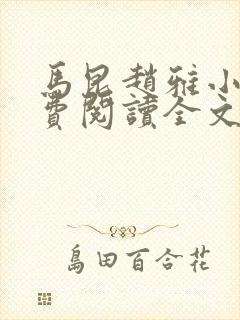 馬昆趙雅小
費閱讀全文
島田百合花